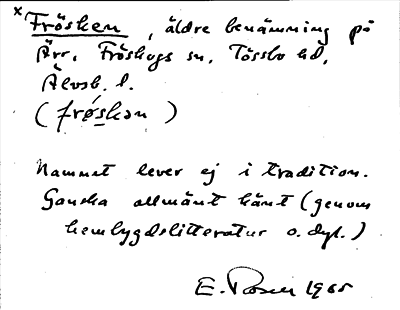 x Frösken, äldre benämning på
Ärr, Fröskogs sn, Tössbo hd,
Älvsb. l.
(frǿskən)
Namnet lever ej i tradition.
Ganska allmänt känt (genom
hembygdslitteratur o. dyl.)
E. Rosen 1965